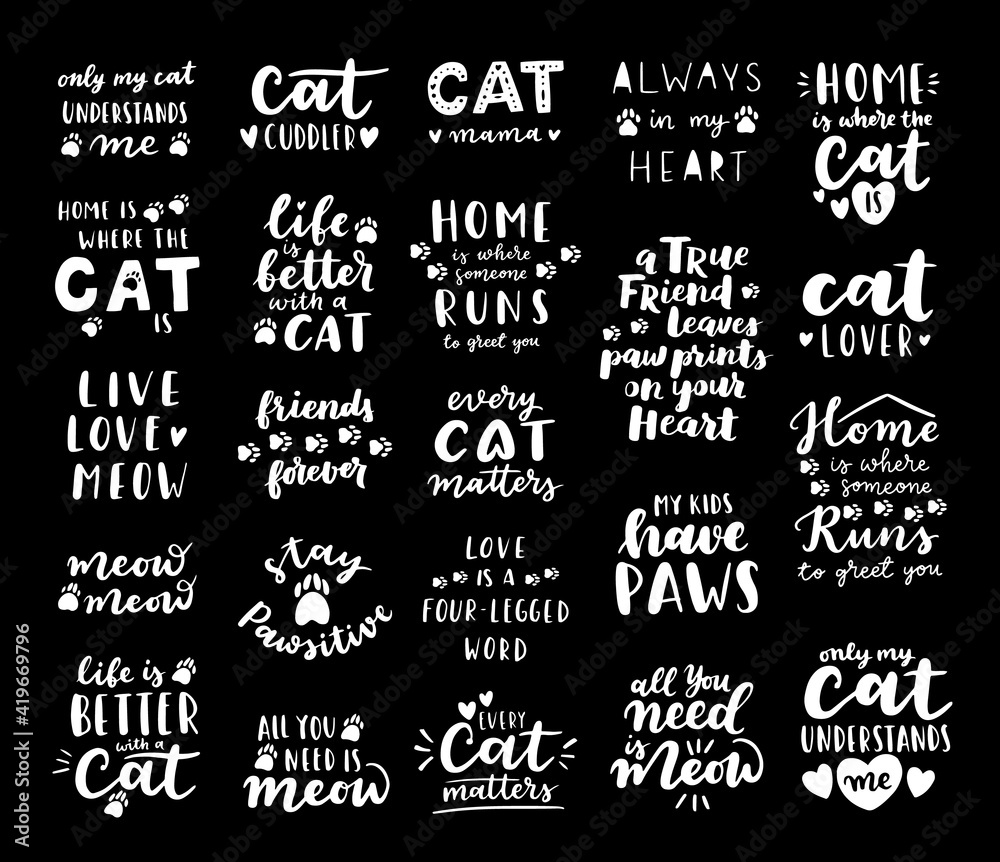 only my cat
UNDERSTANDS
me
cat
CUDDLER
CAT
mama
ALWAYS
in my
HEART
HOME
is where the
Cat
IS
HOME IS
WHERE THE
CAT
IS
life
is
better
with a
CAT
HOME
is where
someone
RUNS
to greet you
a TRUE
FRiend
Leaves
paw prints
on your
Heart
cat
LOVER
LIVE
LOVE
MEOW
friends
forever
every
CAT
matters
Home
is where
someone
Runs
to greet you
meow
meow
stay
Pawsitive
LOVE
IS A
FOUR-LEGGED
WORD
MY KIDS
have
PAWS
life is
BETTER
with a
Cat
ALL YOU
NEED IS
meow
EVERY
Cat
matters
all You
need
is
Meow
only my
Cat
UNDERSTANDS
me
Adobe Stock | #419669796